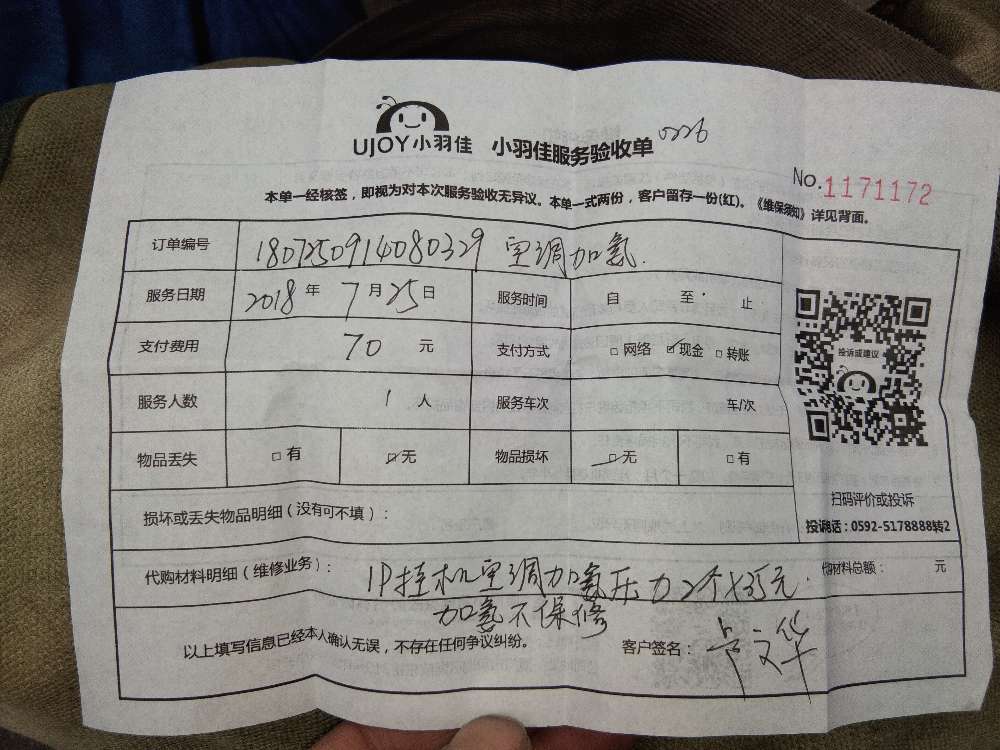 UJOY小羽佳 小羽佳服务验收单 0226
No.1171172
本单一经核签，即视为对本次服务验收无异议。本单一式两份，客户留存一份(红)。《维保须知》详见背面。
订单编号 1807250914080329 空调加氢.
服务日期 2018年7月25日 服务时间 自 至 止
支付费用 70 元 支付方式 □网络 ☑现金 □转账
投诉或建议
服务人数 1人 服务车次 车/次
物品丢失 □有 ☑无 物品损坏 ☑无 □有
扫码评价或投诉
损坏或丢失物品明细（没有可不填）：
投诉电话：0592-5178888转2
代购材料明细（维修业务）： 1P挂机空调加氢压力2个×35元. 代材料总额： 元
加氢不保修
以上填写信息已经本人确认无误，不存在任何争议纠纷。 客户签名：